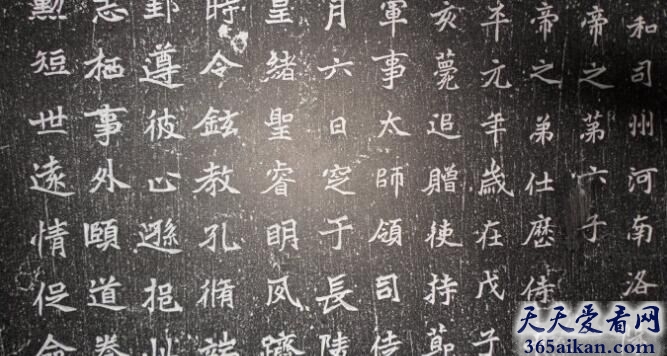 和司州河南洛
帝之第六子
帝之弟仕歷侍
平元年歲在戊子
亥薨追贈使持節
軍事太師領司徒
月六日窆于長陵
皇緒聖睿明夙躋
時令鉉教孔脩端
郢遵彼止遜挹
志栖事外頤道養
勳短世遠情促命
天天爱看网
365aikan.com